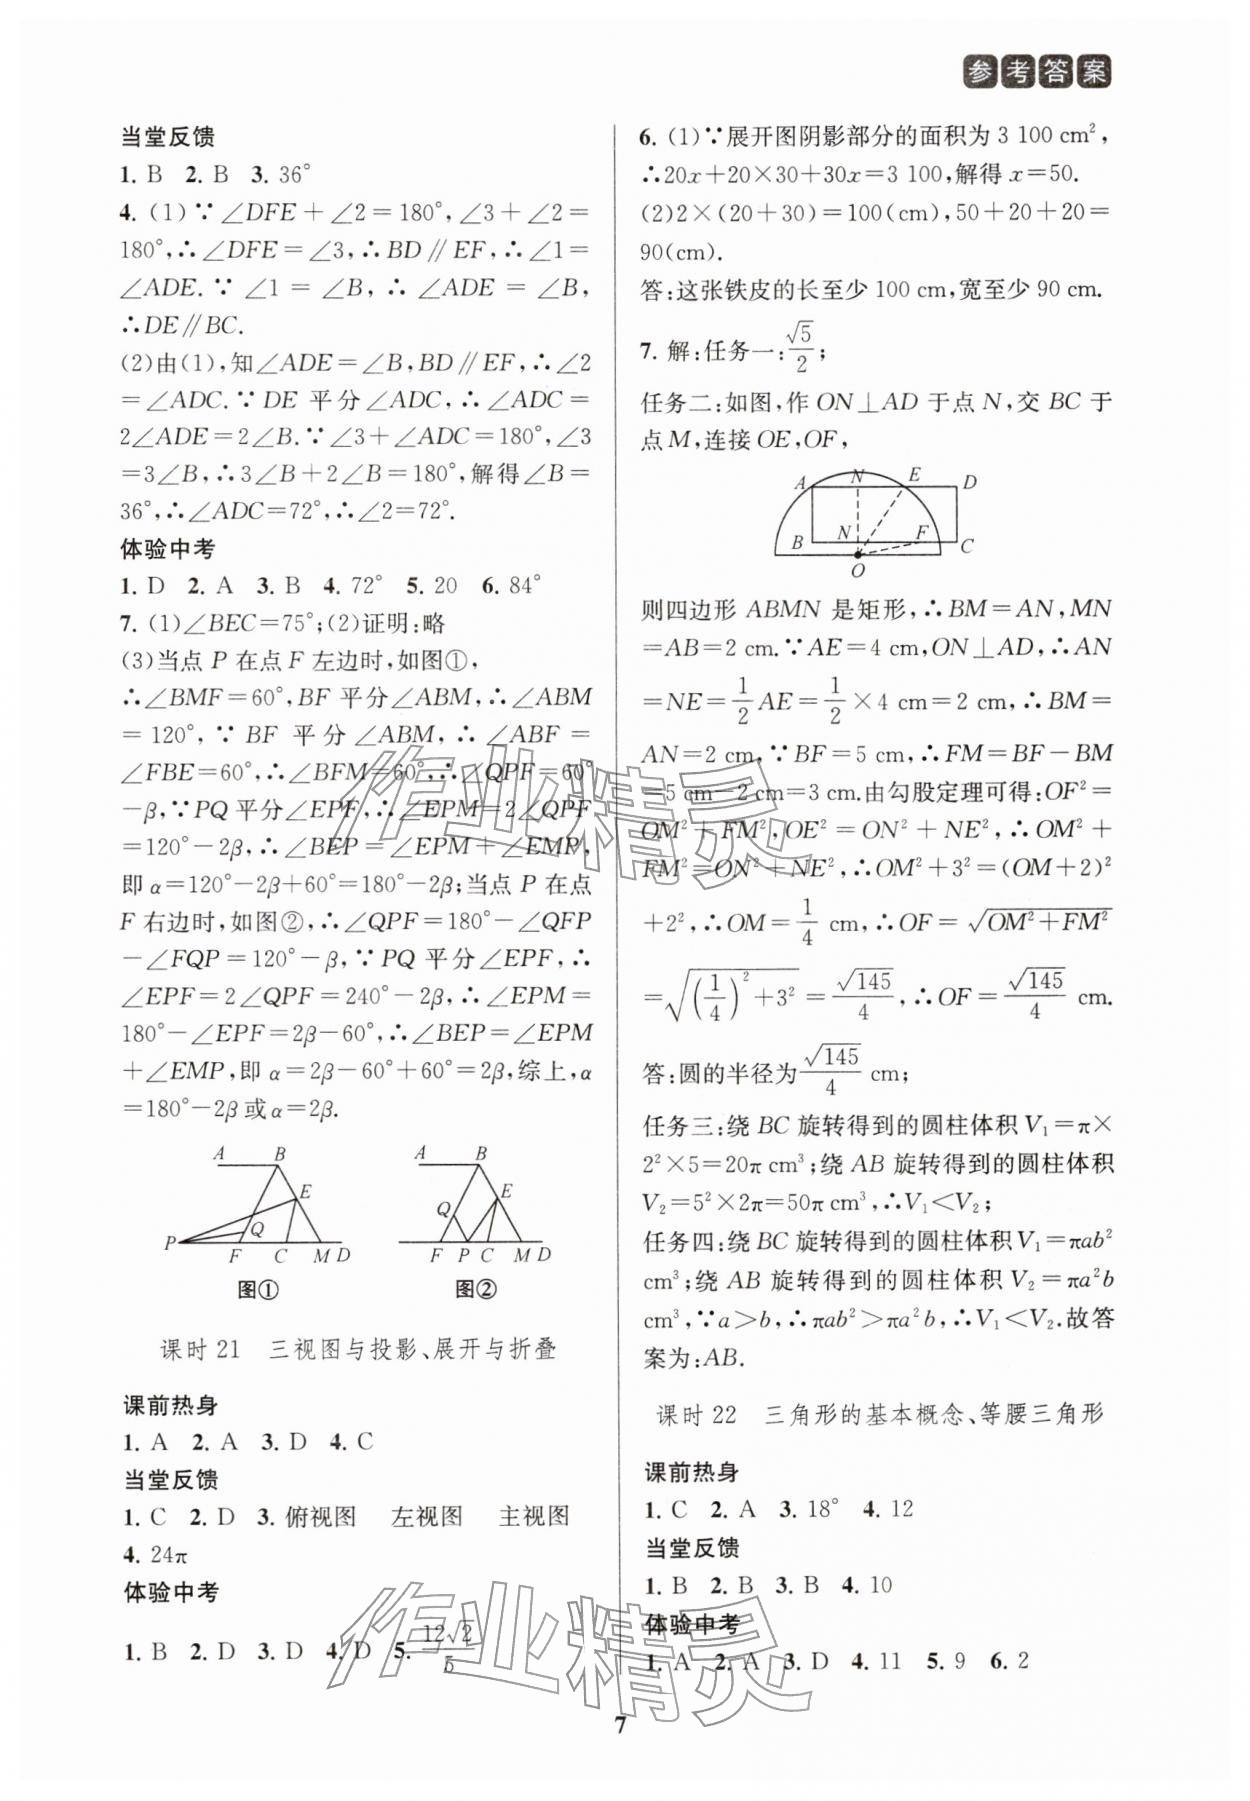 参考答案
当堂反馈
1. B 2. B 3. 36°
4. (1)∵∠DFE+∠2=180°,∠3+∠2=
180°,∴∠DFE=∠3,∴BD∥EF,∴∠1=
∠ADE.∵∠1=∠B,∴∠ADE=∠B,
∴DE∥BC.
(2)由(1),知∠ADE=∠B,BD∥EF,∴∠2
=∠ADC.∵DE 平分∠ADC,∴∠ADC=
2∠ADE=2∠B.∵∠3+∠ADC=180°,∠3
=3∠B,∴3∠B+2∠B=180°,解得∠B=
36°,∴∠ADC=72°,∴∠2=72°.
体验中考
1. D 2. A 3. B 4. 72° 5. 20 6. 84°
7. (1)∠BEC=75°;(2)证明:略
(3)当点 P 在点 F 左边时,如图①,
∴∠BMF=60°,BF 平分∠ABM,∴∠ABM
=120°,∵BF 平分∠ABM,∴∠ABF=
∠FBE=60°,∴∠BFM=60°,∴∠QPF=60°
-β,∵PQ 平分∠EPF,∴∠EPM=2∠QPF
=120°-2β,∴∠BEP=∠EPM+∠EMP,
即 α=120°-2β+60°=180°-2β;当点 P 在点
F 右边时,如图②,∴∠QPF=180°-∠QFP
-∠FQP=120°-β,∵PQ 平分∠EPF,∴
∠EPF=2∠QPF=240°-2β,∴∠EPM=
180°-∠EPF=2β-60°,∴∠BEP=∠EPM
+∠EMP,即 α=2β-60°+60°=2β,综上,α
=180°-2β或α=2β.
A B E Q P F C M D
图①
A B E Q F P C M D
图②
课时 21 三视图与投影、展开与折叠
课前热身
1. A 2. A 3. D 4. C
当堂反馈
1. C 2. D 3. 俯视图 左视图 主视图
4. 24π
体验中考
1. B 2. D 3. D 4. D 5. 12√2/5
6. (1)∵展开图阴影部分的面积为 3 100 cm²,
∴20x+20×30+30x=3 100,解得 x=50.
(2)2×(20+30)=100(cm),50+20+20=
90(cm).
答:这张铁皮的长至少 100 cm,宽至少 90 cm.
7. 解:任务一:√5/2;
任务二:如图,作 ON⊥AD 于点 N,交 BC 于
点 M,连接 OE,OF,
A N E D
B N F C
O
则四边形 ABMN 是矩形,∴BM=AN,MN
=AB=2 cm.∵AE=4 cm,ON⊥AD,∴AN
=NE=1/2AE=1/2×4 cm=2 cm,∴BM=
AN=2 cm,∵BF=5 cm,∴FM=BF-BM
=5 cm-2 cm=3 cm.由勾股定理可得:OF²=
OM²+FM²,OE²=ON²+NE²,∴OM²+
FM²=ON²+NE²,∴OM²+3²=(OM+2)²
+2²,∴OM=1/4 cm,∴OF=√(OM²+FM²)
=√((1/4)²+3²)=√145/4,∴OF=√145/4 cm.
答:圆的半径为√145/4 cm;
任务三:绕 BC 旋转得到的圆柱体积 V₁=π×
2²×5=20π cm³;绕 AB 旋转得到的圆柱体积
V₂=5²×2π=50π cm³,∴V₁<V₂;
任务四:绕 BC 旋转得到的圆柱体积V₁=πab²
cm³;绕 AB 旋转得到的圆柱体积 V₂=πa²b
cm³,∵a>b,∴πab²>πa²b,∴V₁<V₂.故答
案为:AB.
课时 22 三角形的基本概念、等腰三角形
课前热身
1. C 2. A 3. 18° 4. 12
当堂反馈
1. B 2. B 3. B 4. 10
体验中考
1. A 2. A 3. D 4. 11 5. 9 6. 2
7
作业精灵
作业精灵